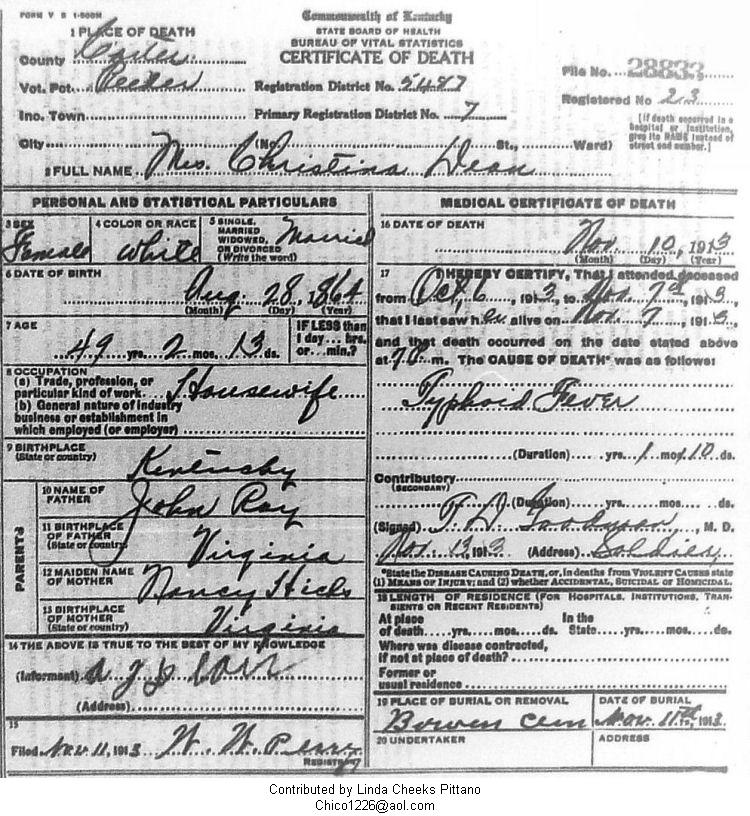 FORM V S 1-500M
Commonwealth of Kentucky
STATE BOARD OF HEALTH
BUREAU OF VITAL STATISTICS
CERTIFICATE OF DEATH
1 PLACE OF DEATH
County Carter
Vot. Pct.
Inc. Town
City (No. St., Ward)
Registration District No. 5487
Primary Registration District No. 7
File No. 28833
Registered No 23
[If death occurred in a hospital or institution, give its NAME instead of street and number.]
2 FULL NAME Mrs. Christina Dean
PERSONAL AND STATISTICAL PARTICULARS
3 SEX
Female
4 COLOR OR RACE
White
5 SINGLE, MARRIED WIDOWED, OR DIVORCED (Write the word)
Married
6 DATE OF BIRTH
Aug. 28, 1864
(Month) (Day) (Year)
7 AGE
49 yrs. 2 mos. 13 ds.
IF LESS than 1 day... hrs. or... min.?
8 OCCUPATION
(a) Trade, profession, or particular kind of work Housewife
(b) General nature of industry business or establishment in which employed (or employer)
9 BIRTHPLACE
(State or country)
Kentucky
PARENTS
10 NAME OF FATHER
John Ray
11 BIRTHPLACE OF FATHER
(State or country)
Virginia
12 MAIDEN NAME OF MOTHER
Nancy Hicks
13 BIRTHPLACE OF MOTHER
(State or country)
Virginia
14 THE ABOVE IS TRUE TO THE BEST OF MY KNOWLEDGE
(Informant)
(Address)
15
Filed Nov 11, 1913 W. W.
REGISTRAR
MEDICAL CERTIFICATE OF DEATH
16 DATE OF DEATH
Nov. 10, 1913
(Month) (Day) (Year)
17 I HEREBY CERTIFY, That I attended deceased
from Oct, 6, 1913, to Nov 7th, 1913,
that I last saw her alive on Nov 7, 1913,
and that death occurred on the date stated above
at m. The CAUSE OF DEATH* was as follows:
Typhoid Fever
(Duration) yrs. 1 mos 10 ds.
Contributory
(SECONDARY)
(Duration) yrs. mos. ds.
(Signed) Goodman, M. D.
Nov. 13, 1913 (Address) Soldier
*State the DISEASE CAUSING DEATH, or, in deaths from VIOLENT CAUSES state
(1) MEANS OF INJURY; and (2) whether ACCIDENTAL, SUICIDAL OR HOMICIDAL.
18 LENGTH OF RESIDENCE (FOR HOSPITALS, INSTITUTIONS, TRANSIENTS OR RECENT RESIDENTS)
At place of death yrs. mos. ds. In the State yrs. mos. ds.
Where was disease contracted, if not at place of death?
Former or usual residence
19 PLACE OF BURIAL OR REMOVAL
Bowen Cem
DATE OF BURIAL
Nov. 11th, 1913
20 UNDERTAKER
ADDRESS
Contributed by Linda Cheeks Pittano
Chico1226@aol.com